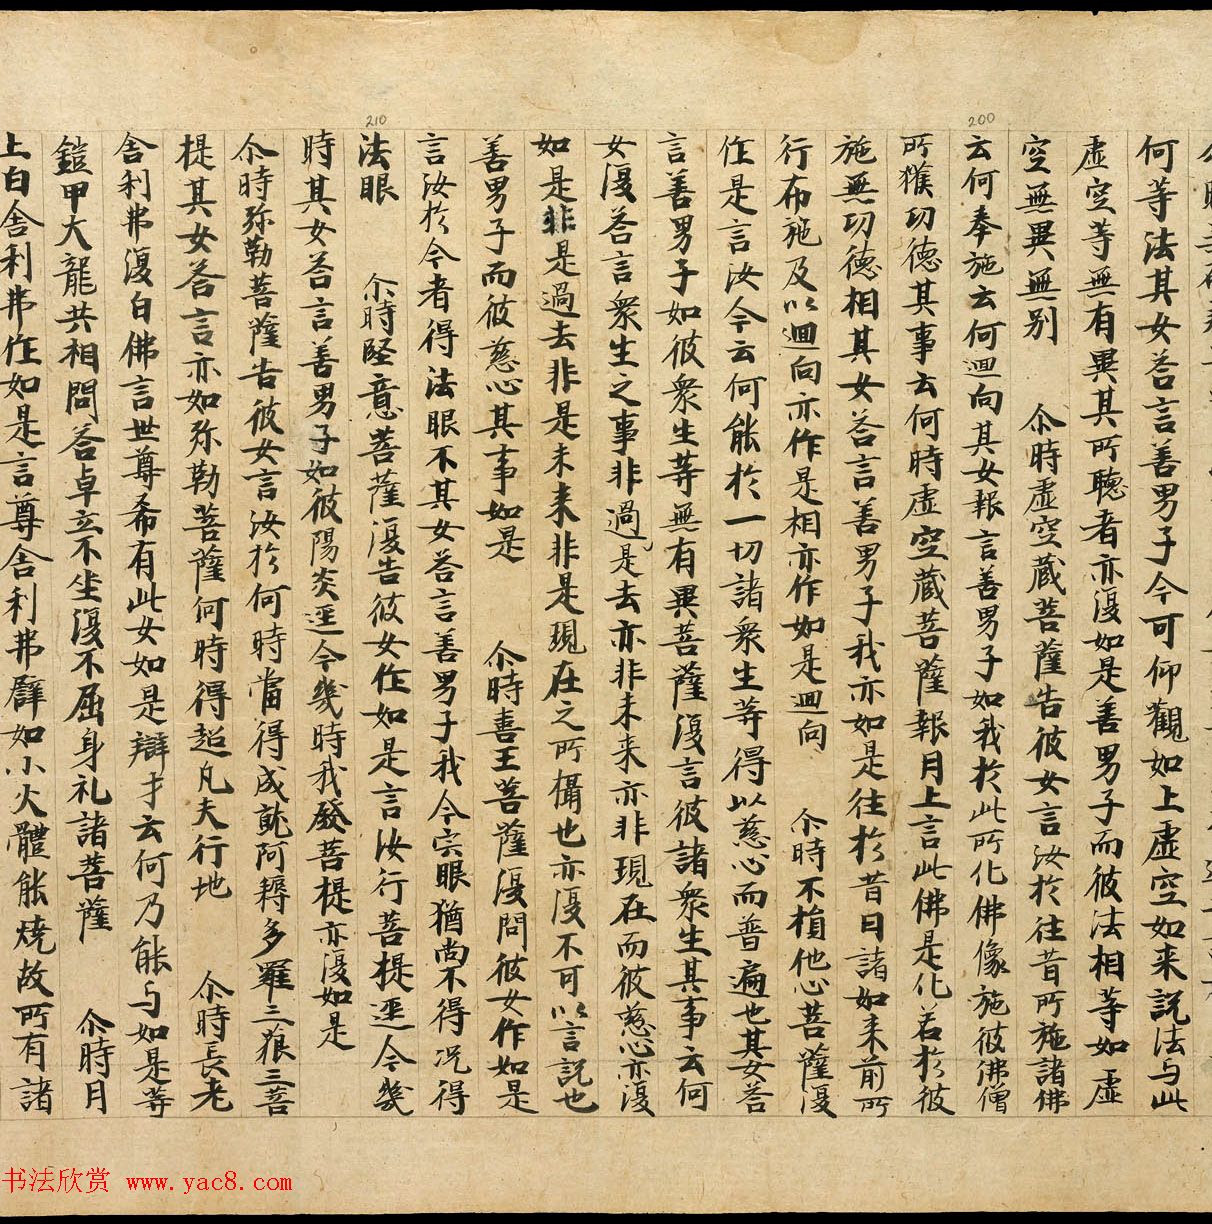 何等法其女荅言善男子今可仰觀如上虛空如来説法与此
虛空等無有異其所聴者亦復如是善男子而彼法相等如虛
空無異無别　尒時虛空蔵菩薩告彼女言汝於往昔所施諸佛
云何奉施云何迴向其女報言善男子如我於此所化佛像施彼佛僧
所獲功徳其事云何時虛空蔵菩薩報月上言此佛是化若於彼
施無功徳相其女荅言善男子我亦如是往於昔日諸如来前所
行布施及以迴向亦作是相亦作如是迴向　尒時不損他心菩薩復
作是言汝今云何能於一切諸衆生等得以慈心而普遍也其女荅
言善男子如彼衆生等無有異菩薩復言彼諸衆生其事云何
女復荅言衆生之事非過是去亦非未来亦非現在而彼慈心亦復
如是非是過去非是未来非是現在之所攝也亦復不可以言説也
善男子而彼慈心其事如是　尒時喜王菩薩復問彼女作如是
言汝於今者得法眼不其女荅言善男子我今宍眼猶尚不得况得
法眼　尒時堅意菩薩復告彼女作如是言汝行菩提逕今幾
時其女荅言善男子如彼陽炎逕今幾時我發菩提亦復如是
尒時弥勒菩薩告彼女言汝於何時當得成就阿耨多羅三藐三菩
提其女荅言亦如弥勒菩薩何時得超凡夫行地　尒時長老
舎利弗復白佛言世尊希有此女如是辯才云何乃能与如是等
鎧甲大龍共相問荅卓立不坐復不屈身礼諸菩薩　尒時月
上白舎利弗作如是言尊舎利弗譬如小火體能燒故所有諸
210
200
书法欣赏 www.yac8.com